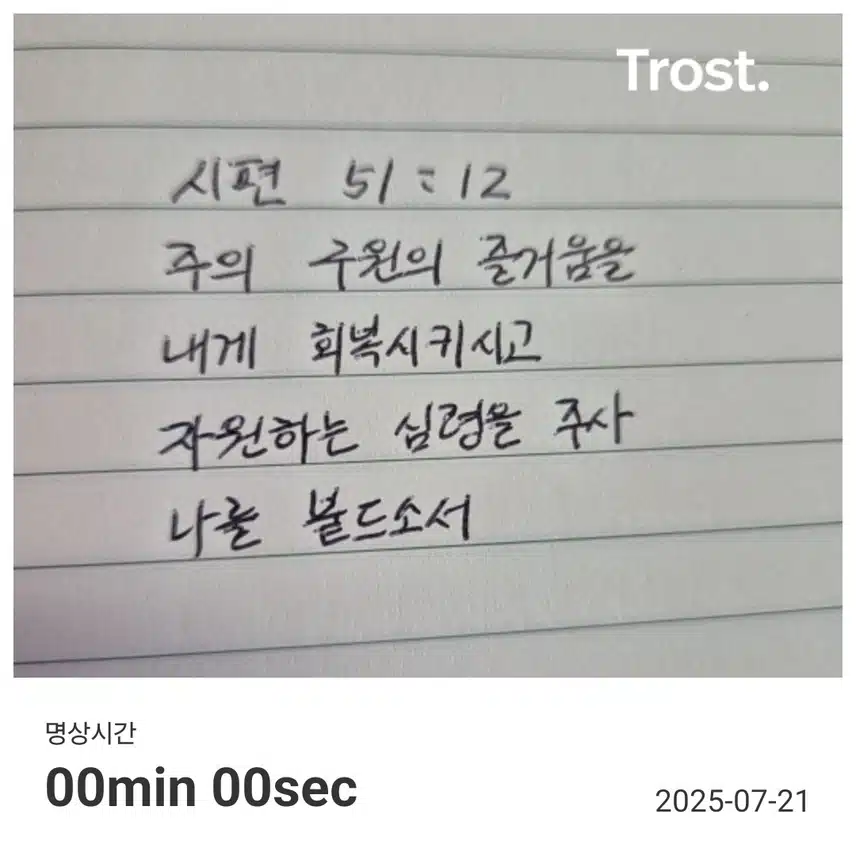 Trost.
시편 51:12
주의 구원의 즐거움을
내게 회복시키시고
자원하는 심령을 주사
나를 붙드소서
명상시간
00min 00sec
2025-07-21